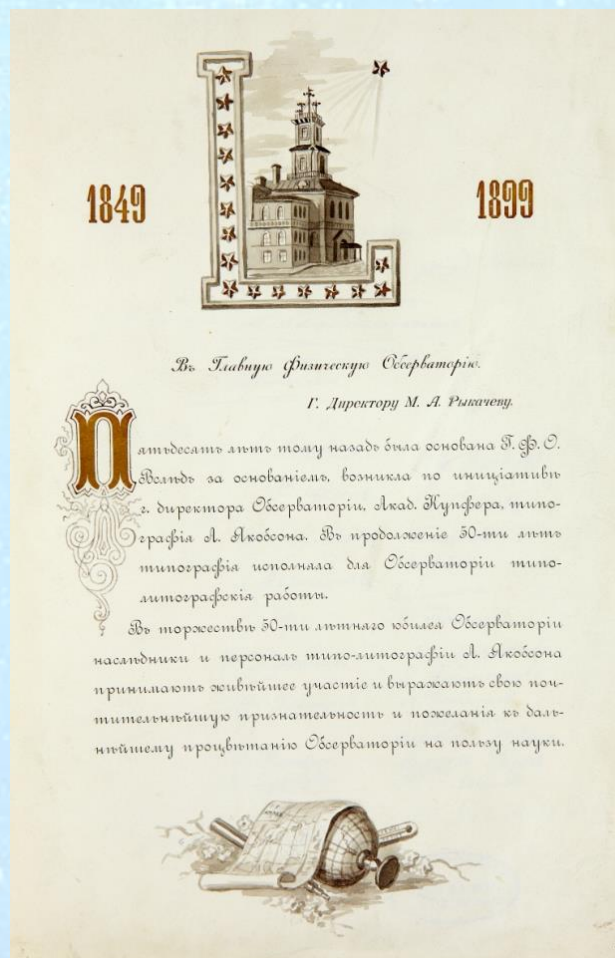 L
1849 1899
Въ Главную Физическую Обсерваторію.
Г. Директору М. А. Рыкачеву.
Пятьдесять лѣтъ тому назадъ была основана Г. Ф. О.
Вслѣдъ за основаніемъ, возникла по иниціативѣ
г. директора Обсерваторіи, Акад. Купфера, типо-
графія А. Якобсона. Въ продолженіе 50-ти лѣтъ
типографія исполняла для Обсерваторіи типо-
литографскія работы.
Въ торжествѣ 50-ти лѣтняго юбилея Обсерваторіи
наслѣдники и персоналъ типо-литографіи А. Якобсона
принимаютъ живѣйшее участіе и выражаютъ свою поч-
тительнѣйшую признательность и пожеланія къ даль-
нѣйшему процвѣтанію Обсерваторіи на пользу науки.